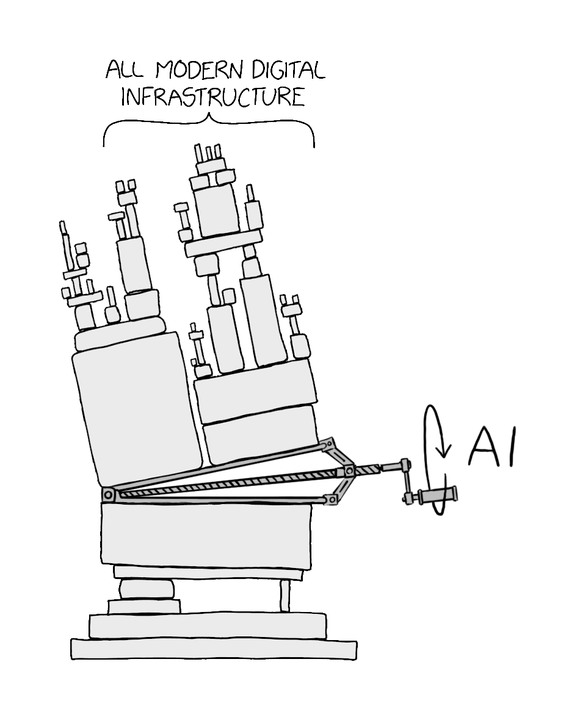 ALL MODERN DIGITAL
INFRASTRUCTURE
AI